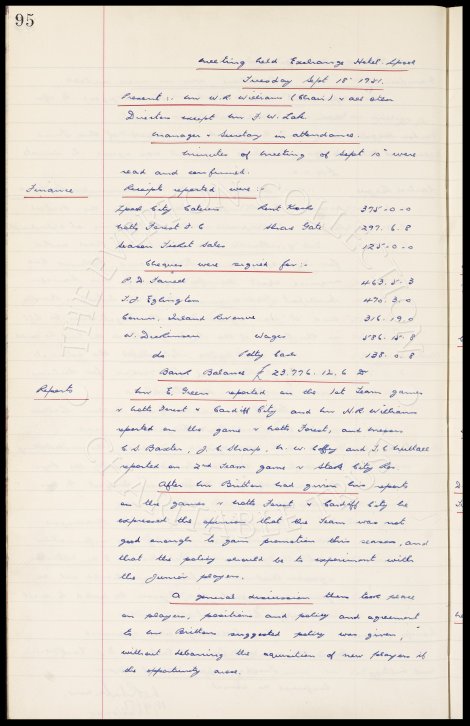 95
Meeting held Exchange Hotel L'pool
Tuesday Sept 18 1951.
Present:- Mr W.R. Williams (Chair) & all other
Directors except Mr J. W.
Manager & Secretary in attendance.
Minutes of meeting of Sept 10 were
read and confirmed.
Finance
Receipts reported were:-
L'pool City Caterers Rent Kiosks 375-0-0
Notts Forest F C Share Gate 297. 6 8
Season Ticket Sales 125-0-0
Cheques were signed for:-
P. D. Farrell 463. 5. 3
T.J Eglington 470. 3. 0
Comm. Inland Revenue 316. 19. 0
W. Dickinson Wages 586. 15. 8
do Petty Cash 138. 0. 8
Bank Balance £ 23.776. 12. 6
Reports
Mr E. Green reported on the 1st Team games
v Notts Forest & Cardiff City and Mr N.R Williams
reported on the game v Notts Forest, and Messrs
C.S. Baxter, J. C. Sharp, N. W. Coffey and T.C. Nuttall
reported on 2nd Team game v Stoke City Res.
After Mr Britton had given his reports
on the games v Notts Forest & Cardiff City he
expressed the opinion that the Team was not
good enough to gain promotion this season, and
that the policy should be to experiment with
the Junior players.
A general discussion then took place
on players, positions and policy and agreement
to Mr Brittons suggested policy was given,
without debarring the acquisition of new players if
the opportunity arose.